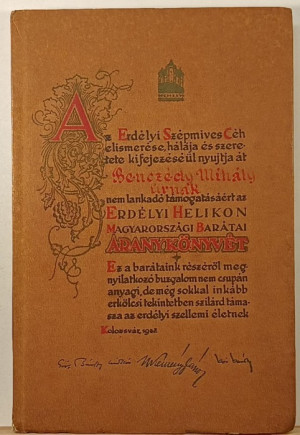 Az Erdélyi Szépmives Céh
elismerése, hálája és szere-
tete kifejezéséül nyujtja át
Benczédy Mihály
úrnak
nem lankadó támogatásáért az
Erdélyi Helikon
Magyarországi Barátai
Aranykönyvét
Ez a barátaink részéről meg-
nyilatkozó buzgalom nem csupán
anyagi, de még sokkal inkább
erkölcsi tekintetben szilárd táma-
sza az erdélyi szellemi életnek
Kolozsvár, 1942